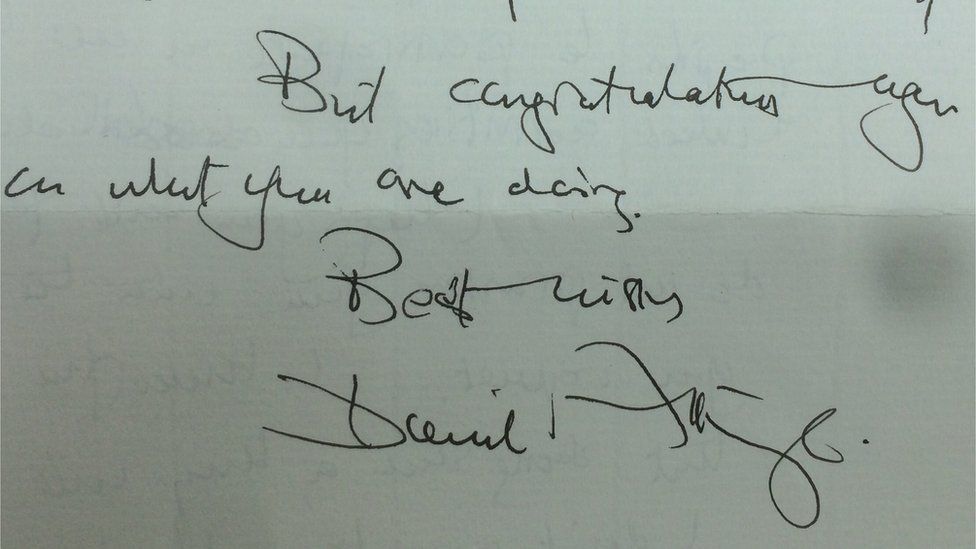 But congratulations again
on what you are doing.
Best wishes
David